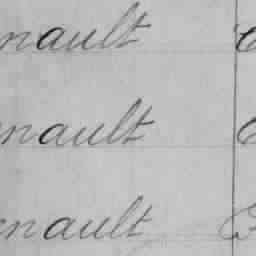 nault
nault
nault